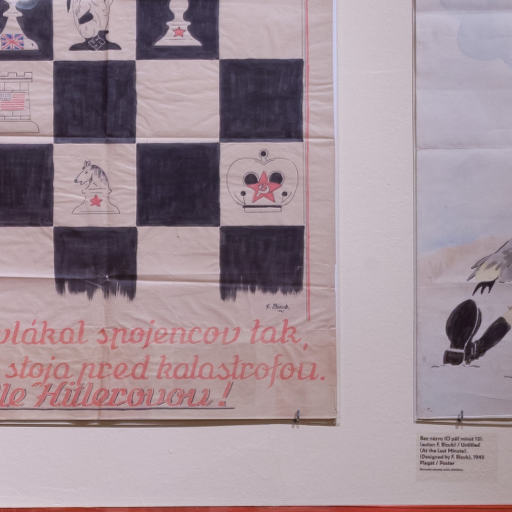 F. Bloch
vlákal spojencov tak,
stoja pred katastrofou.
le Hitlerovou!
Bez názvu (O päť minút 12).
(autor: F. Bloch) / Untitled
(At the Last Minute).
(Designed by F. Bloch), 1945
Plagát / Poster